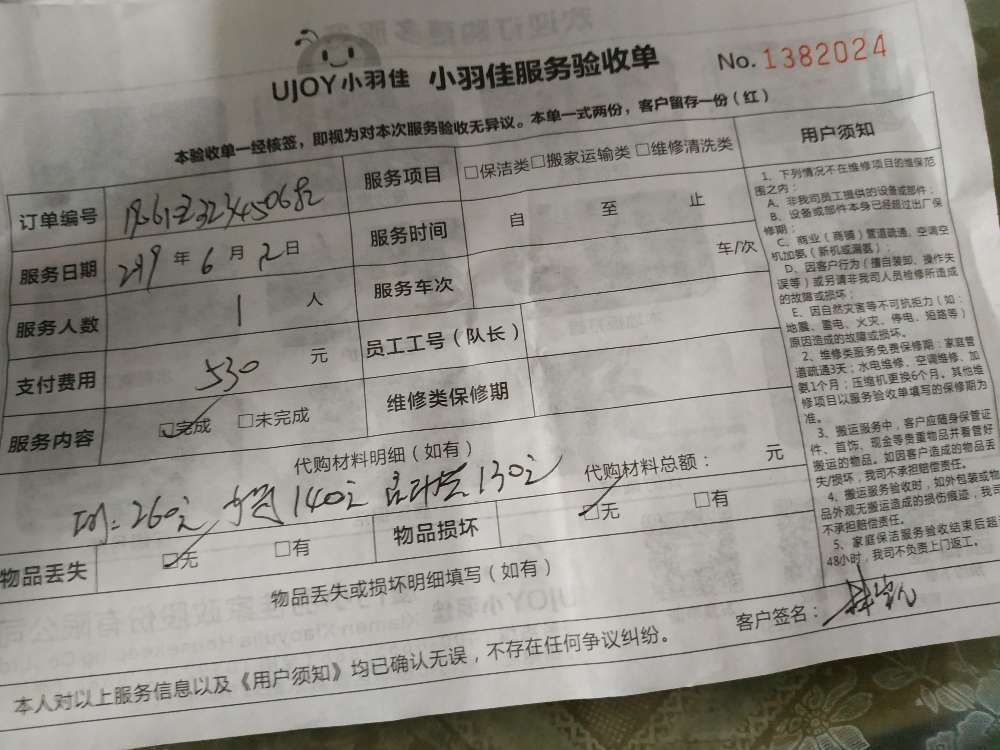 UJOY小羽佳 小羽佳服务验收单 No. 1382024
本验收单一经核签，即视为对本次服务验收无异议。本单一式两份，客户留存一份（红）
订单编号
服务项目 □保洁类□搬家运输类□维修清洗类
服务日期 年 6 月 2 日
服务时间 自 至 止
服务人数 1 人
服务车次 车/次
支付费用 530 元
员工工号（队长）
服务内容 ☑完成 □未完成
维修类保修期
代购材料明细（如有）
260元 140元 130元
代购材料总额： 元
物品丢失 ☑无 □有
物品损坏 ☑无 □有
物品丢失或损坏明细填写（如有）
客户签名：
本人对以上服务信息以及《用户须知》均已确认无误，不存在任何争议纠纷。
用户须知
1、下列情况不在维修项目的维保范
围之内：
A、非我司员工提供的设备或部件；
B、设备或部件本身已经超过出厂保
修期；
C、商业（商铺）管道疏通、空调空
机加氨（新机或漏氨）；
D、因客户行为（擅自装卸、操作失
误等）或另请非我司人员检修所造成
的故障或损坏；
E、因自然灾害等不可抗拒力（如：
地震、雷电、火灾、停电、短路等）
原因造成的故障或损坏。
2、维修类服务免费保修期：家庭管
道疏通3天；水电维修、空调维修、加
氨1个月；压缩机更换6个月。其他维
修项目以服务验收单填写的保修期为
准。
3、搬运服务中，客户应随身保管证
件、首饰、现金等贵重物品并看管好
搬运的物品。如因客户造成的物品丢
失/损坏，我司不承担赔偿责任。
4、搬运服务验收时，如外包装或物
品外观无搬运造成的损伤痕迹，我司
不承担赔偿责任。
5、家庭保洁服务验收结束后超
48小时，我司不负责上门返工。